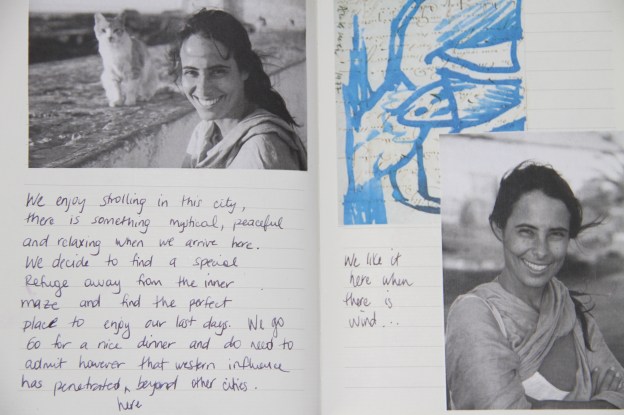 We enjoy strolling in this city,
there is something mystical, peaceful
and relaxing when we arrive here.
We decide to find a special
Refuge away from the inner
maze and find the perfect
place to enjoy our last days. We go
Go for a nice dinner and do need to
admit however that western influence
has penetrated ^ beyond other cities.
here
We like it
here when
there is
wind...